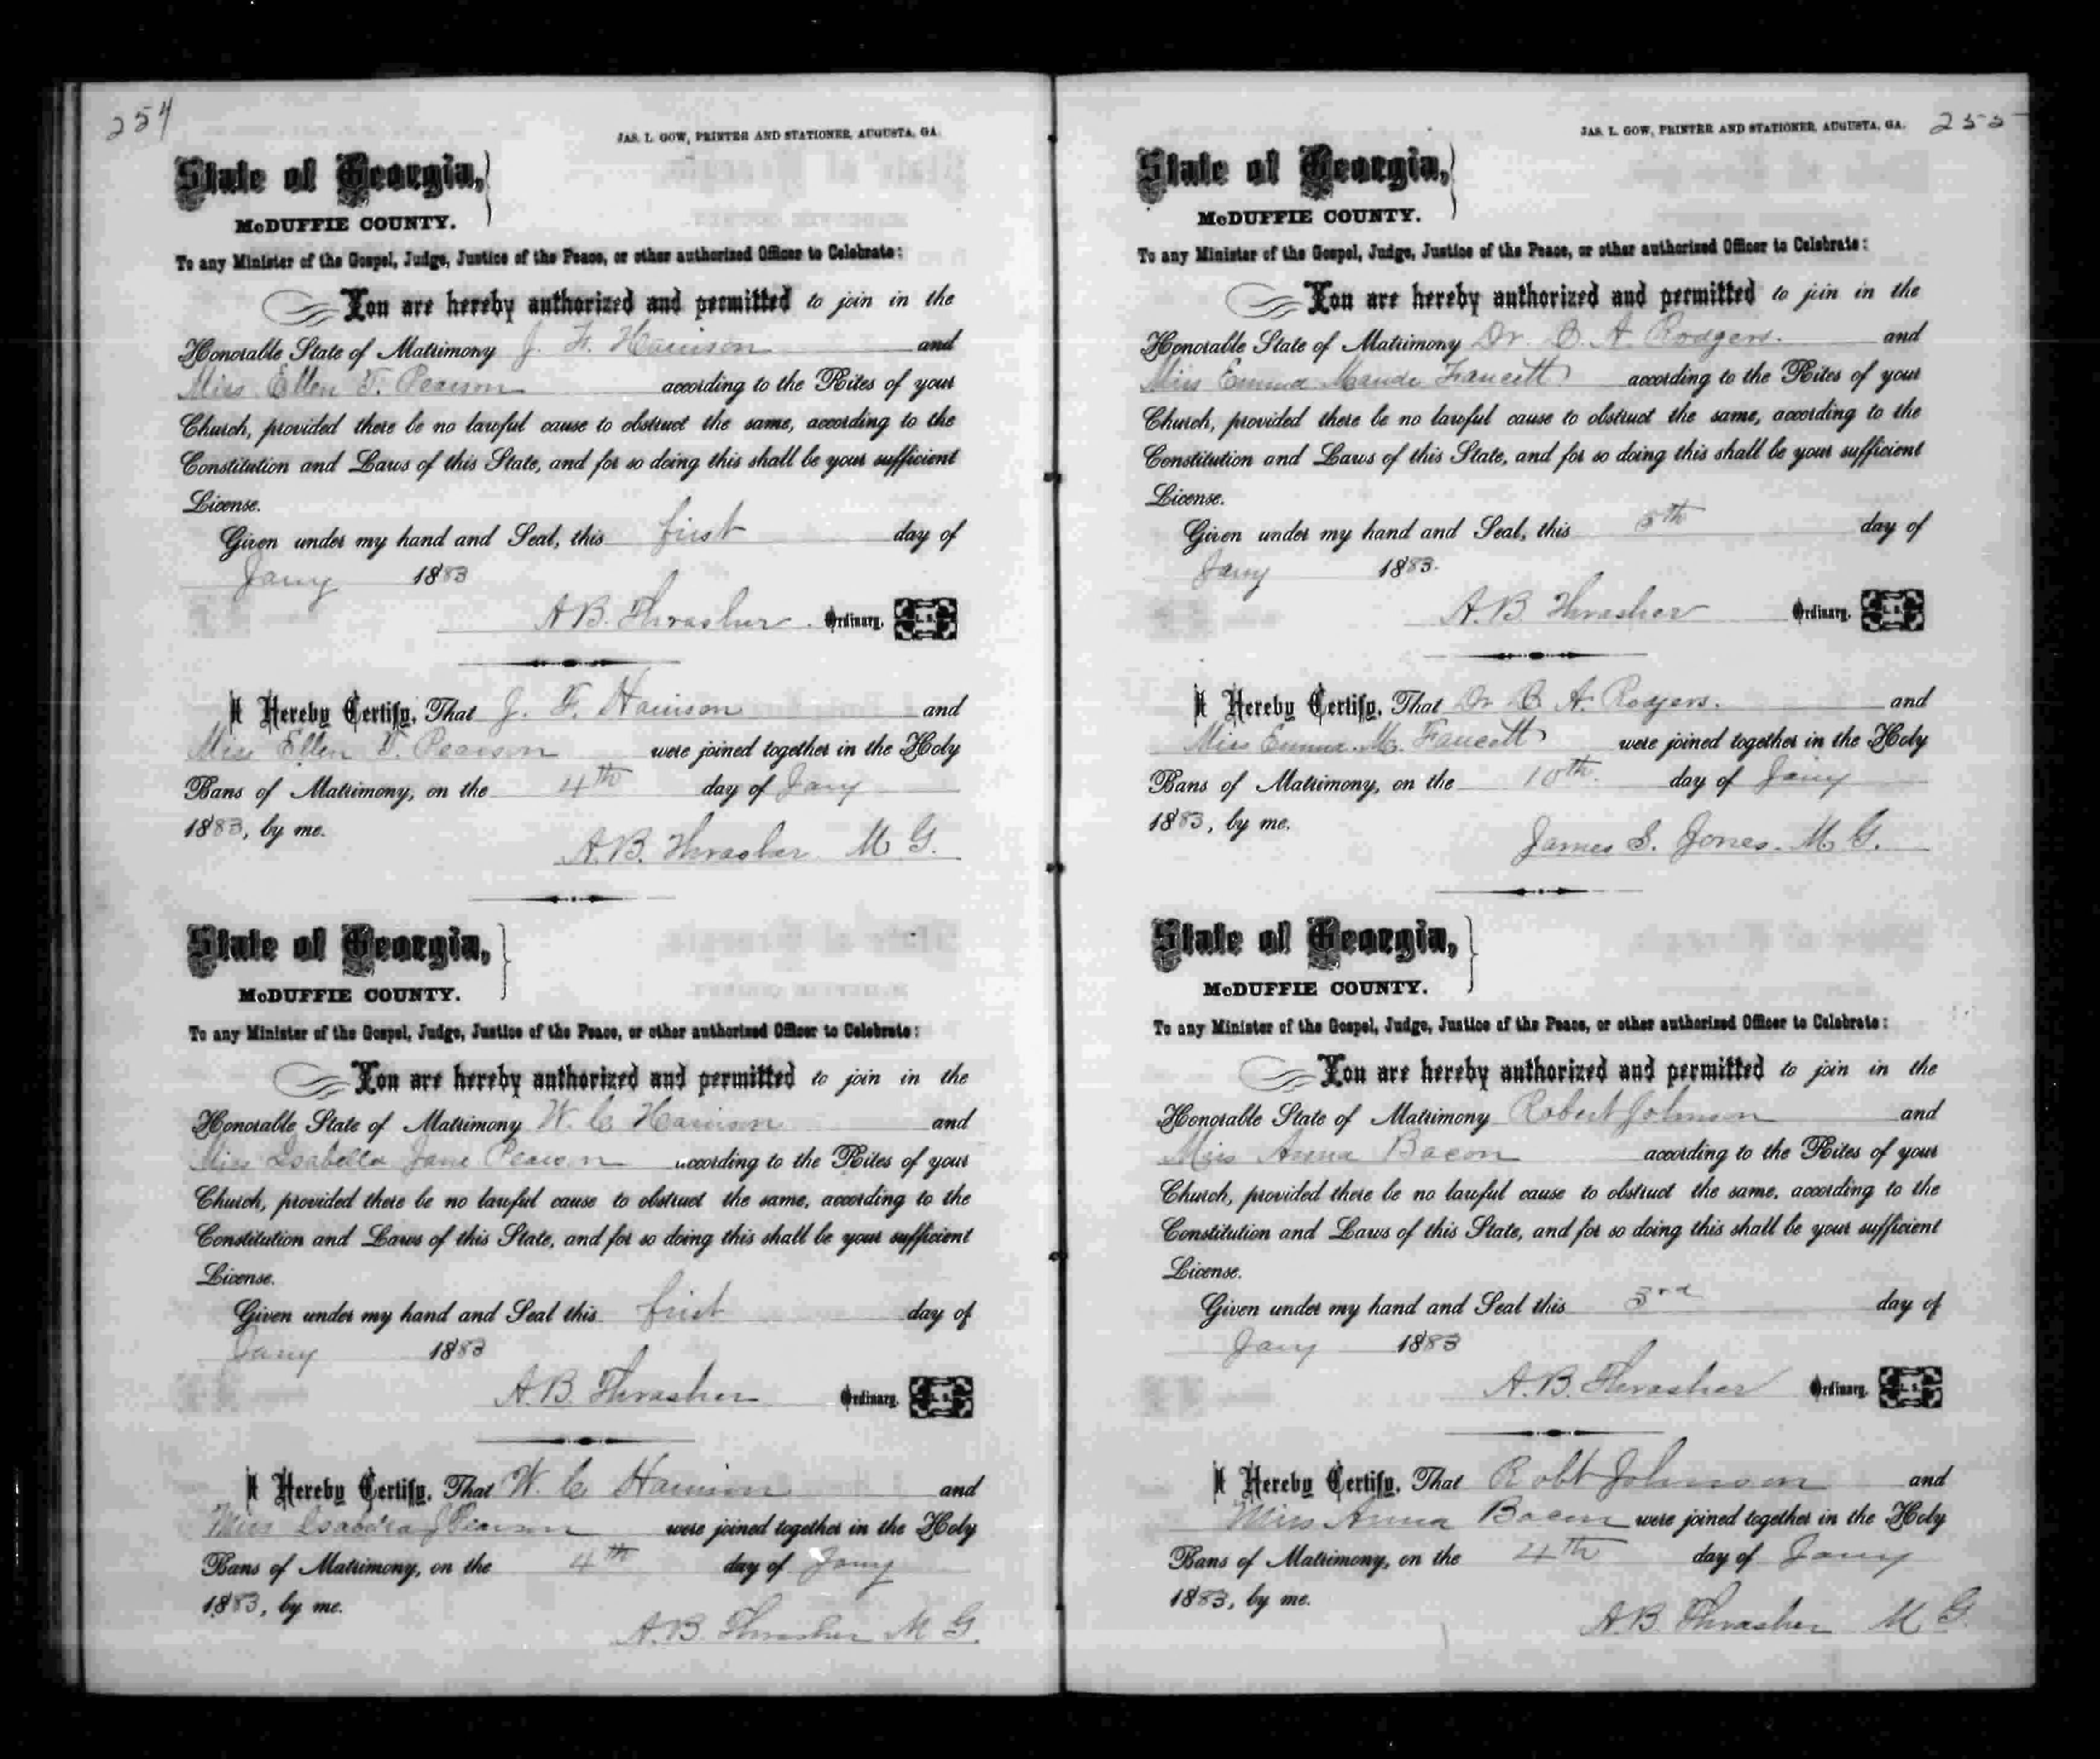 254
JAS. L. GOW, PRINTER AND STATIONER, AUGUSTA, GA.
State of Georgia,
McDUFFIE COUNTY.
To any Minister of the Gospel, Judge, Justice of the Peace, or other authorized Officer to Celebrate:
You are hereby authorized and permitted to join in the
Honorable State of Matrimony J. F. Harrison and
Miss Ellen T. Pearson according to the Rites of your
Church, provided there be no lawful cause to obstruct the same, according to the
Constitution and Laws of this State, and for so doing this shall be your sufficient
License.
Given under my hand and Seal, this first day of
Jany 1883
A B. Thrasher Ordinary. L. S.
I Hereby Certify, That J. F. Harrison and
Miss Ellen T. Pearson were joined together in the Holy
Bans of Matrimony, on the 4th day of Jany
1883, by me.
A.B. Thrasher M G.
State of Georgia,
McDUFFIE COUNTY.
To any Minister of the Gospel, Judge, Justice of the Peace, or other authorized Officer to Celebrate:
You are hereby authorized and permitted to join in the
Honorable State of Matrimony W. C Harrison and
Miss Isabella Jane Pearson according to the Rites of your
Church, provided there be no lawful cause to obstruct the same, according to the
Constitution and Laws of this State, and for so doing this shall be your sufficient
License.
Given under my hand and Seal this first day of
Jany 1883
A.B. Thrasher Ordinary. L. S.
I Hereby Certify, That W. C Harrison and
Miss Isabella J Pearson were joined together in the Holy
Bans of Matrimony, on the 4th day of Jany
1883, by me.
A.B. Thrasher M G.
255
JAS. L. GOW, PRINTER AND STATIONER, AUGUSTA, GA.
State of Georgia,
McDUFFIE COUNTY.
To any Minister of the Gospel, Judge, Justice of the Peace, or other authorized Officer to Celebrate:
You are hereby authorized and permitted to join in the
Honorable State of Matrimony Dr. A. Rodgers. and
Miss Emma Maude Faucett according to the Rites of your
Church, provided there be no lawful cause to obstruct the same, according to the
Constitution and Laws of this State, and for so doing this shall be your sufficient
License.
Given under my hand and Seal, this 5th day of
Jany 1883.
A.B Thrasher Ordinary. L. S.
I Hereby Certify, That Dr A. Rodgers. and
Miss Emma. M. Faucett were joined together in the Holy
Bans of Matrimony, on the 10th. day of Jany
1883, by me.
James S. Jones. M G.
State of Georgia,
McDUFFIE COUNTY.
To any Minister of the Gospel, Judge, Justice of the Peace, or other authorized Officer to Celebrate:
You are hereby authorized and permitted to join in the
Honorable State of Matrimony Robert Johnson and
Miss Anna Bacon according to the Rites of your
Church, provided there be no lawful cause to obstruct the same, according to the
Constitution and Laws of this State, and for so doing this shall be your sufficient
License.
Given under my hand and Seal this 3rd day of
Jany 1883
A.B. Thrasher Ordinary. L. S.
I Hereby Certify, That Robt Johnson and
Miss Anna Bacon were joined together in the Holy
Bans of Matrimony, on the 4th day of Jany
1883, by me.
A.B. Thrasher M G.